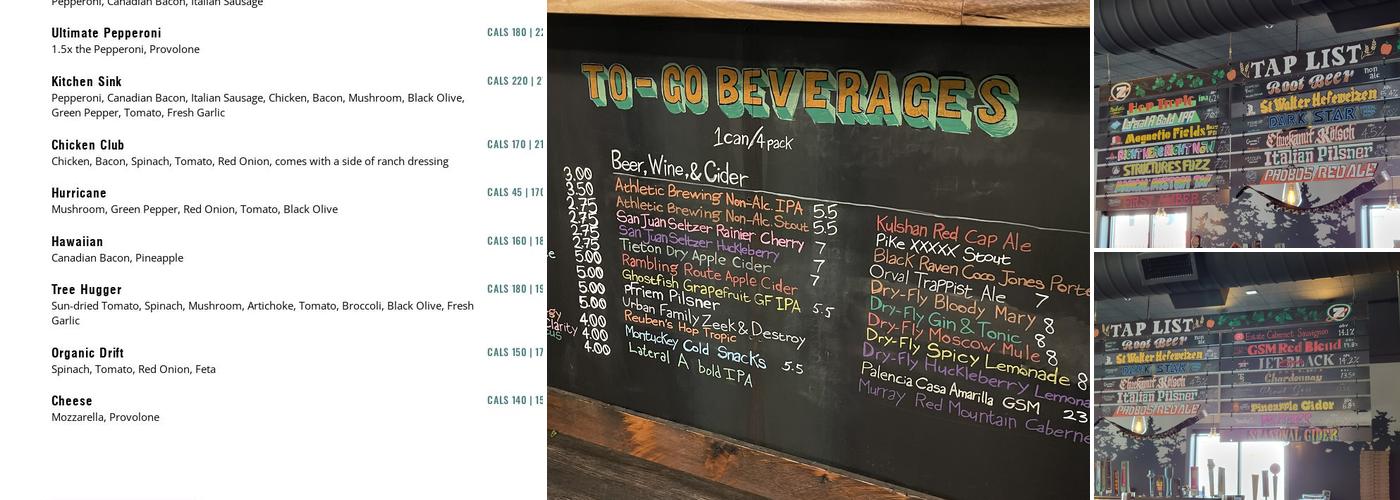 Pepperoni, Canadian Bacon, Italian Sausage
Ultimate Pepperoni
CALS 180 | 22
1.5x the Pepperoni, Provolone
Kitchen Sink
CALS 220 | 2
Pepperoni, Canadian Bacon, Italian Sausage, Chicken, Bacon, Mushroom, Black Olive,
Green Pepper, Tomato, Fresh Garlic
Chicken Club
CALS 170 | 21
Chicken, Bacon, Spinach, Tomato, Red Onion, comes with a side of ranch dressing
Hurricane
CALS 45 | 170
Mushroom, Green Pepper, Red Onion, Tomato, Black Olive
Hawaiian
CALS 160 | 18
Canadian Bacon, Pineapple
Tree Hugger
CALS 180 | 19
Sun-dried Tomato, Spinach, Mushroom, Artichoke, Tomato, Broccoli, Black Olive, Fresh
Garlic
Organic Drift
CALS 150 | 17
Spinach, Tomato, Red Onion, Feta
Cheese
CALS 140 | 15
Mozzarella, Provolone
TO-GO BEVERAGES
1can/4pack
Beer, Wine, & Cider
3.00
3.50
2.75
2.75
2.75
2.75
5.00
5.00
5.00
5.00
4.00
4.00
4.00
Clarity
Athletic Brewing Non-Alc. IPA 5.5
Athletic Brewing Non-Alc. Stout 5.5
San Juan Seltzer Rainier Cherry 7
San Juan Seltzer Huckleberry 7
Tieton Dry Apple Cider 7
Rambling Route Apple Cider 7
Ghostfish Grapefruit GF IPA 5.5
pFriem Pilsner
Urban Family Zeek & Destroy
Reuben's Hop Tropic
Montucky Cold Snacks 5.5
Lateral A bold IPA
Kulshan Red Cap Ale
Pike XXXXX Stout
Black Raven Coco Jones Porte
Orval Trappist Ale 7
Dry-Fly Bloody Mary 8
Dry-Fly Gin & Tonic 8
Dry-Fly Moscow Mule 8
Dry-Fly Spicy Lemonade 8
Dry-Fly Huckleberry Lemona
Palencia Casa Amarilla GSM 23
Murray Red Mountain Caberne
TAP LIST
Hop Tropic
Lateral A Bold IPA
Magnetic Fields
RIGHT HERE RIGHT NOW
STRUCTURES FUZZ
Root Beer non alc
St Walter Hefeweizen
DARK STAR
Chuckanut Kölsch
Italian Pilsner
PHOBOS RED ALE
TAP LIST
Root Beer
St Walter Hefeweizen
DARK STAR
Chuckanut Kölsch
Italian Pilsner
PHOBOS RED ALE
Estate Cabernet Sauvignon
GSM Red Blend
JET BLACK
Chardonnay
Pineapple Cider
SEASONAL CIDER